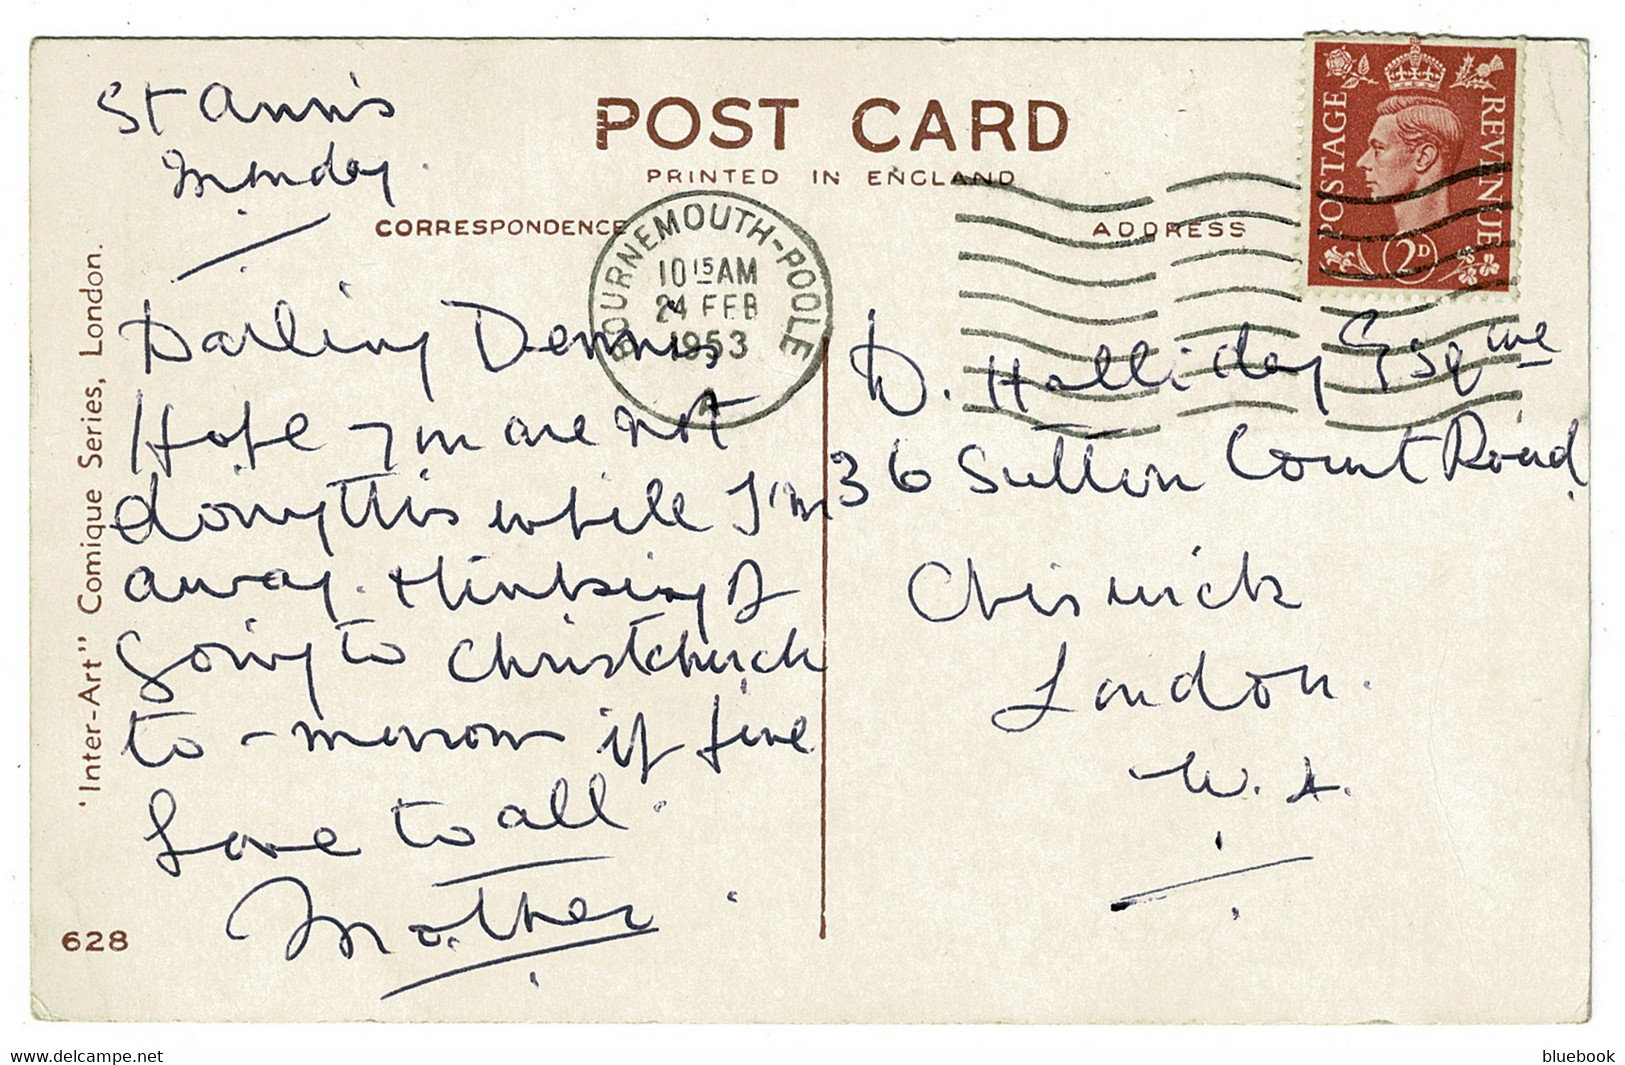 POST CARD
PRINTED IN ENGLAND
CORRESPONDENCE
ADDRESS
St Ann's
Monday.
Darling Dennis,
Hope you are not
doing this while I'm
away. Thinking of
going to Christchurch
to-morrow if fine
Love to all.
Mother
BOURNEMOUTH-POOLE
10 15 AM
24 FEB
1953
A
POSTAGE
REVENUE
2D
D. Halliday Esqure
36 Sutton Court Road,
Chiswick
London.
W. 4.
'Inter-Art" Comique Series, London.
628
delcampe.net
bluebook